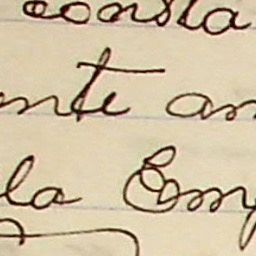 consta
nte an
la Emp